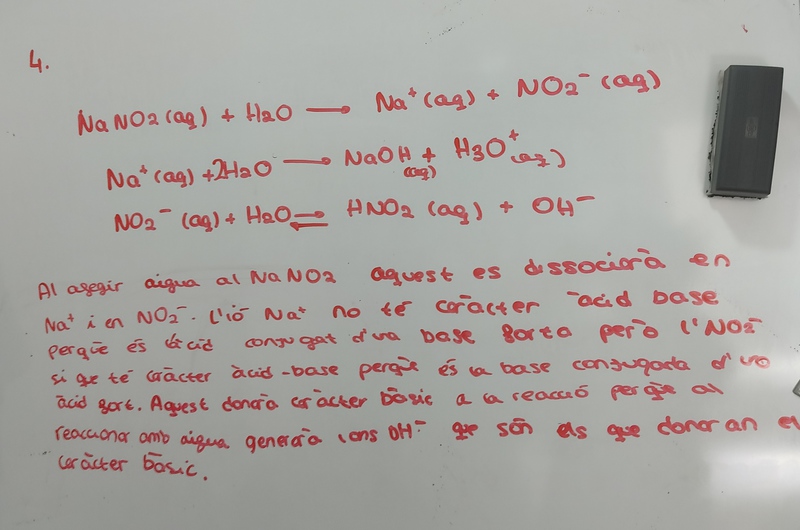 4.
NaNO2(aq) + H2O → Na⁺(aq) + NO2⁻(aq)
Na⁺(aq) + 2H2O → NaOH(aq) + H3O⁺(aq)
NO2⁻(aq) + H2O ⇌ HNO2(aq) + OH⁻
Al afegir aigua al NaNO2 aquest es dissociarà en
Na⁺ i en NO2⁻. L'ió Na⁺ no té caràcter àcid base
perquè és l'àcid conjugat d'una base forta però l'NO2⁻
si que té caràcter àcid-base perquè és la base conjugada d'un
àcid fort. Aquest donarà caràcter bàsic a la reacció perquè al
reaccionar amb aigua generarà ions OH⁻ que són els que donaran el
caràcter bàsic.